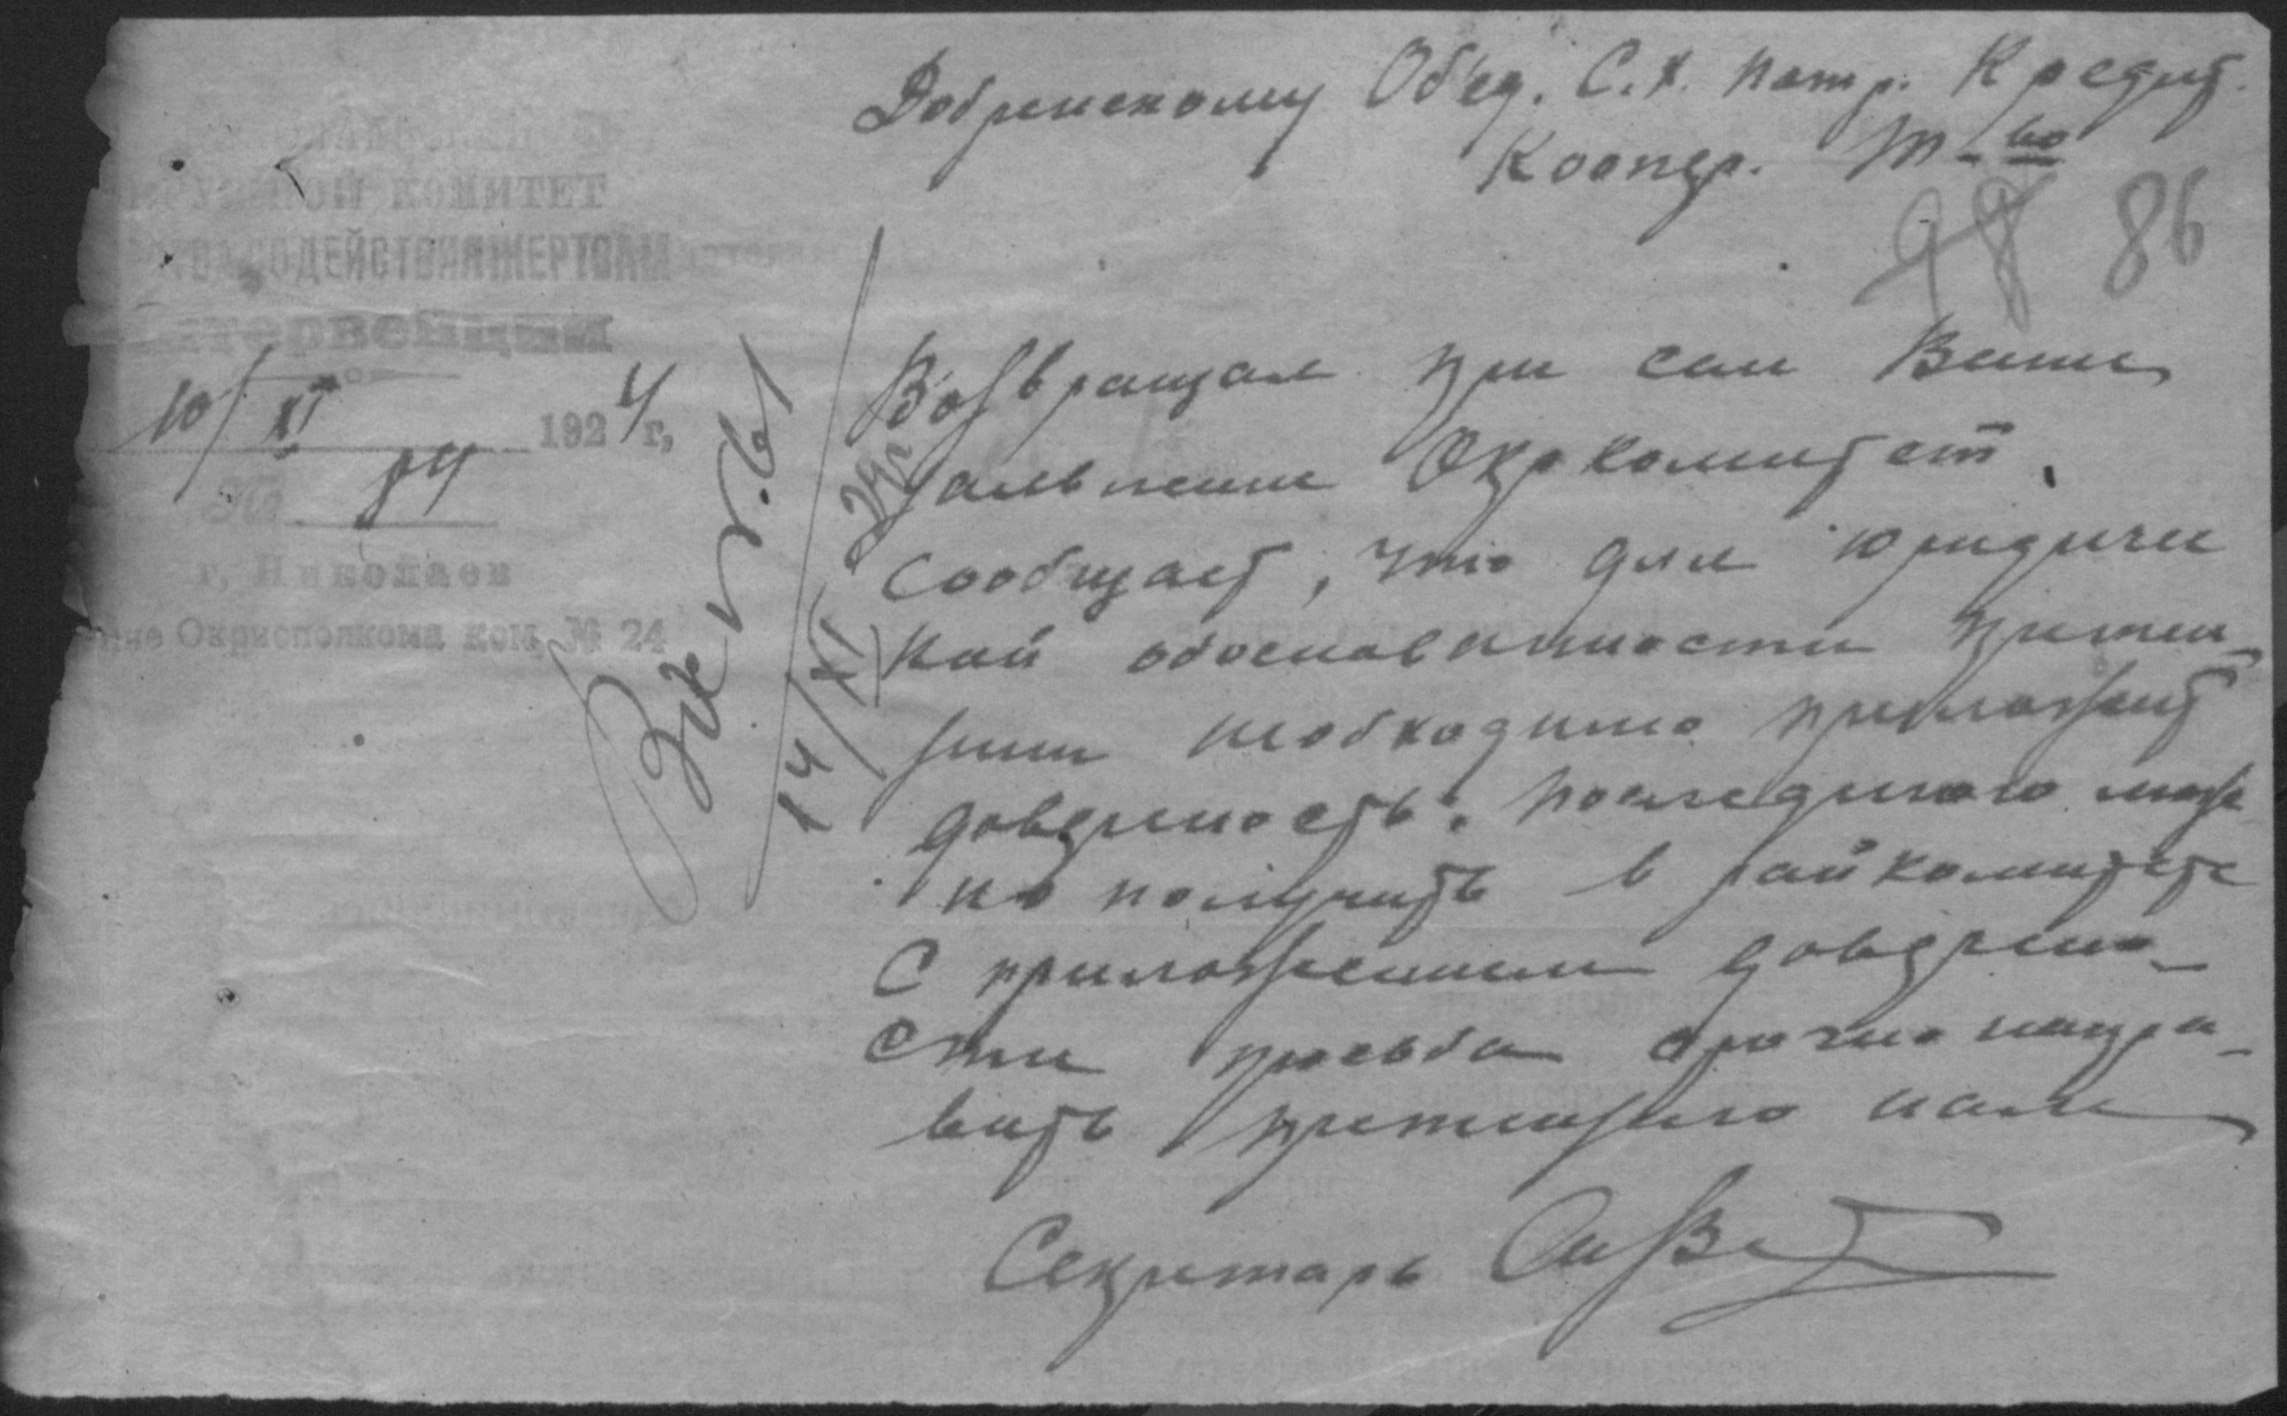 КОМИТЕТ
СОДЕЙСТВИЯ ЖЕРТВАМ
интервенции
10/XI 1924 г,
№ 84
г, Николаев
Окрисполкома ком, № 24
Вх № 61
14/XI 24 г
Добренскому Об'ед. С.Х. Потр. Кредит.
Коопер. Т-во
98 86
Возвращая при сем Ваше
заявление Окркомитет
сообщает, что для юридиче
кой обоснованности претен-
зии необходимо приложит
доверенность. Последнюю мож
но получить в райкомитете
С приложением доверено-
сти просьба срочно напра-
вить претензию нам
Секретарь